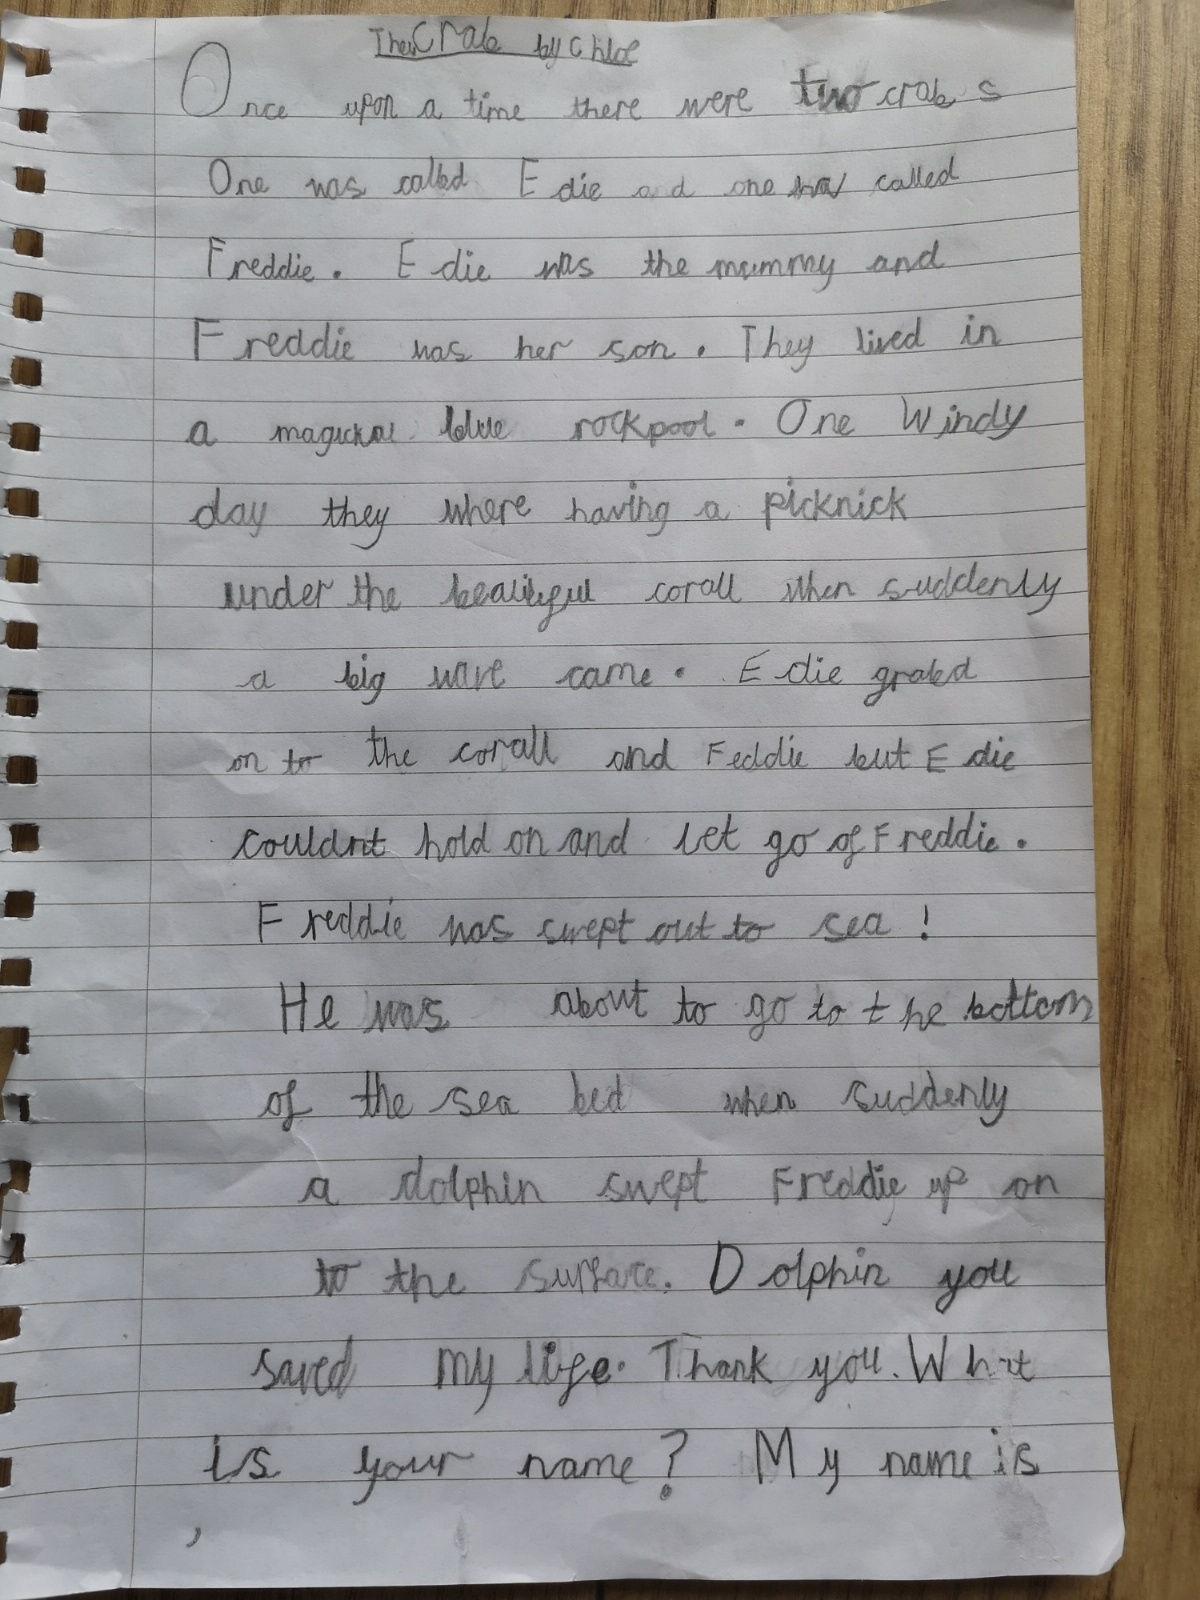 The Crab by Chloe
Once upon a time there were two crab s
One was called Edie and one was called
Freddie. Edie was the mummy and
Freddie was her son. They lived in
a magickal blue rockpool. One Windy
day they where having a picknick
under the beautiful corall when suddenly
a big wave came. Edie grabd
on to the corall and Feddie but Edie
couldnt hold on and let go of Freddie.
Freddie was swept out to sea!
He was about to go to the bottom
of the sea bed when suddenly
a dolphin swept Freddie up on
to the surface. Dolphin you
saved my life. Thank you. What
is your name? My name is
,